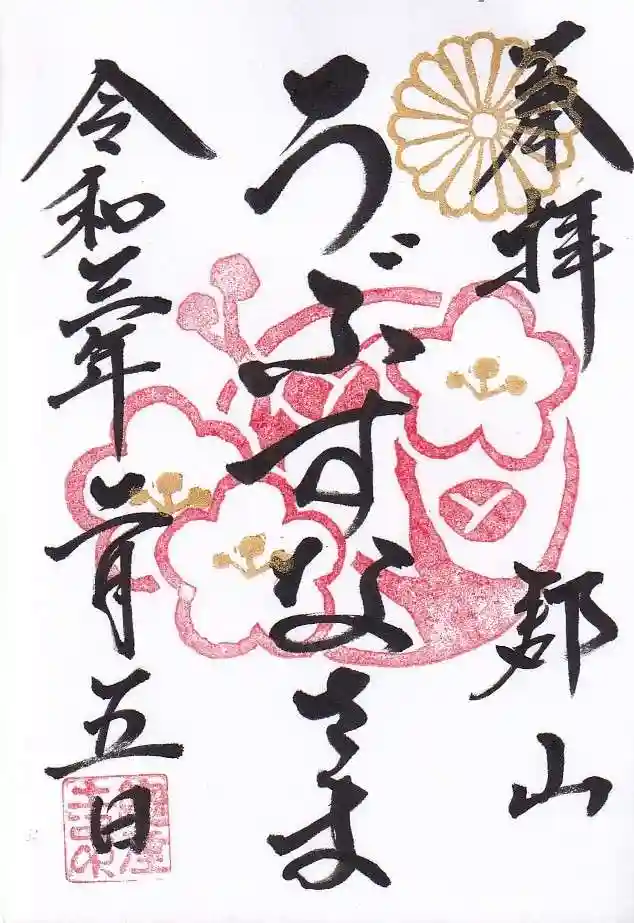 奉拝
郡山
うぶすなさま
令和三年二月五日